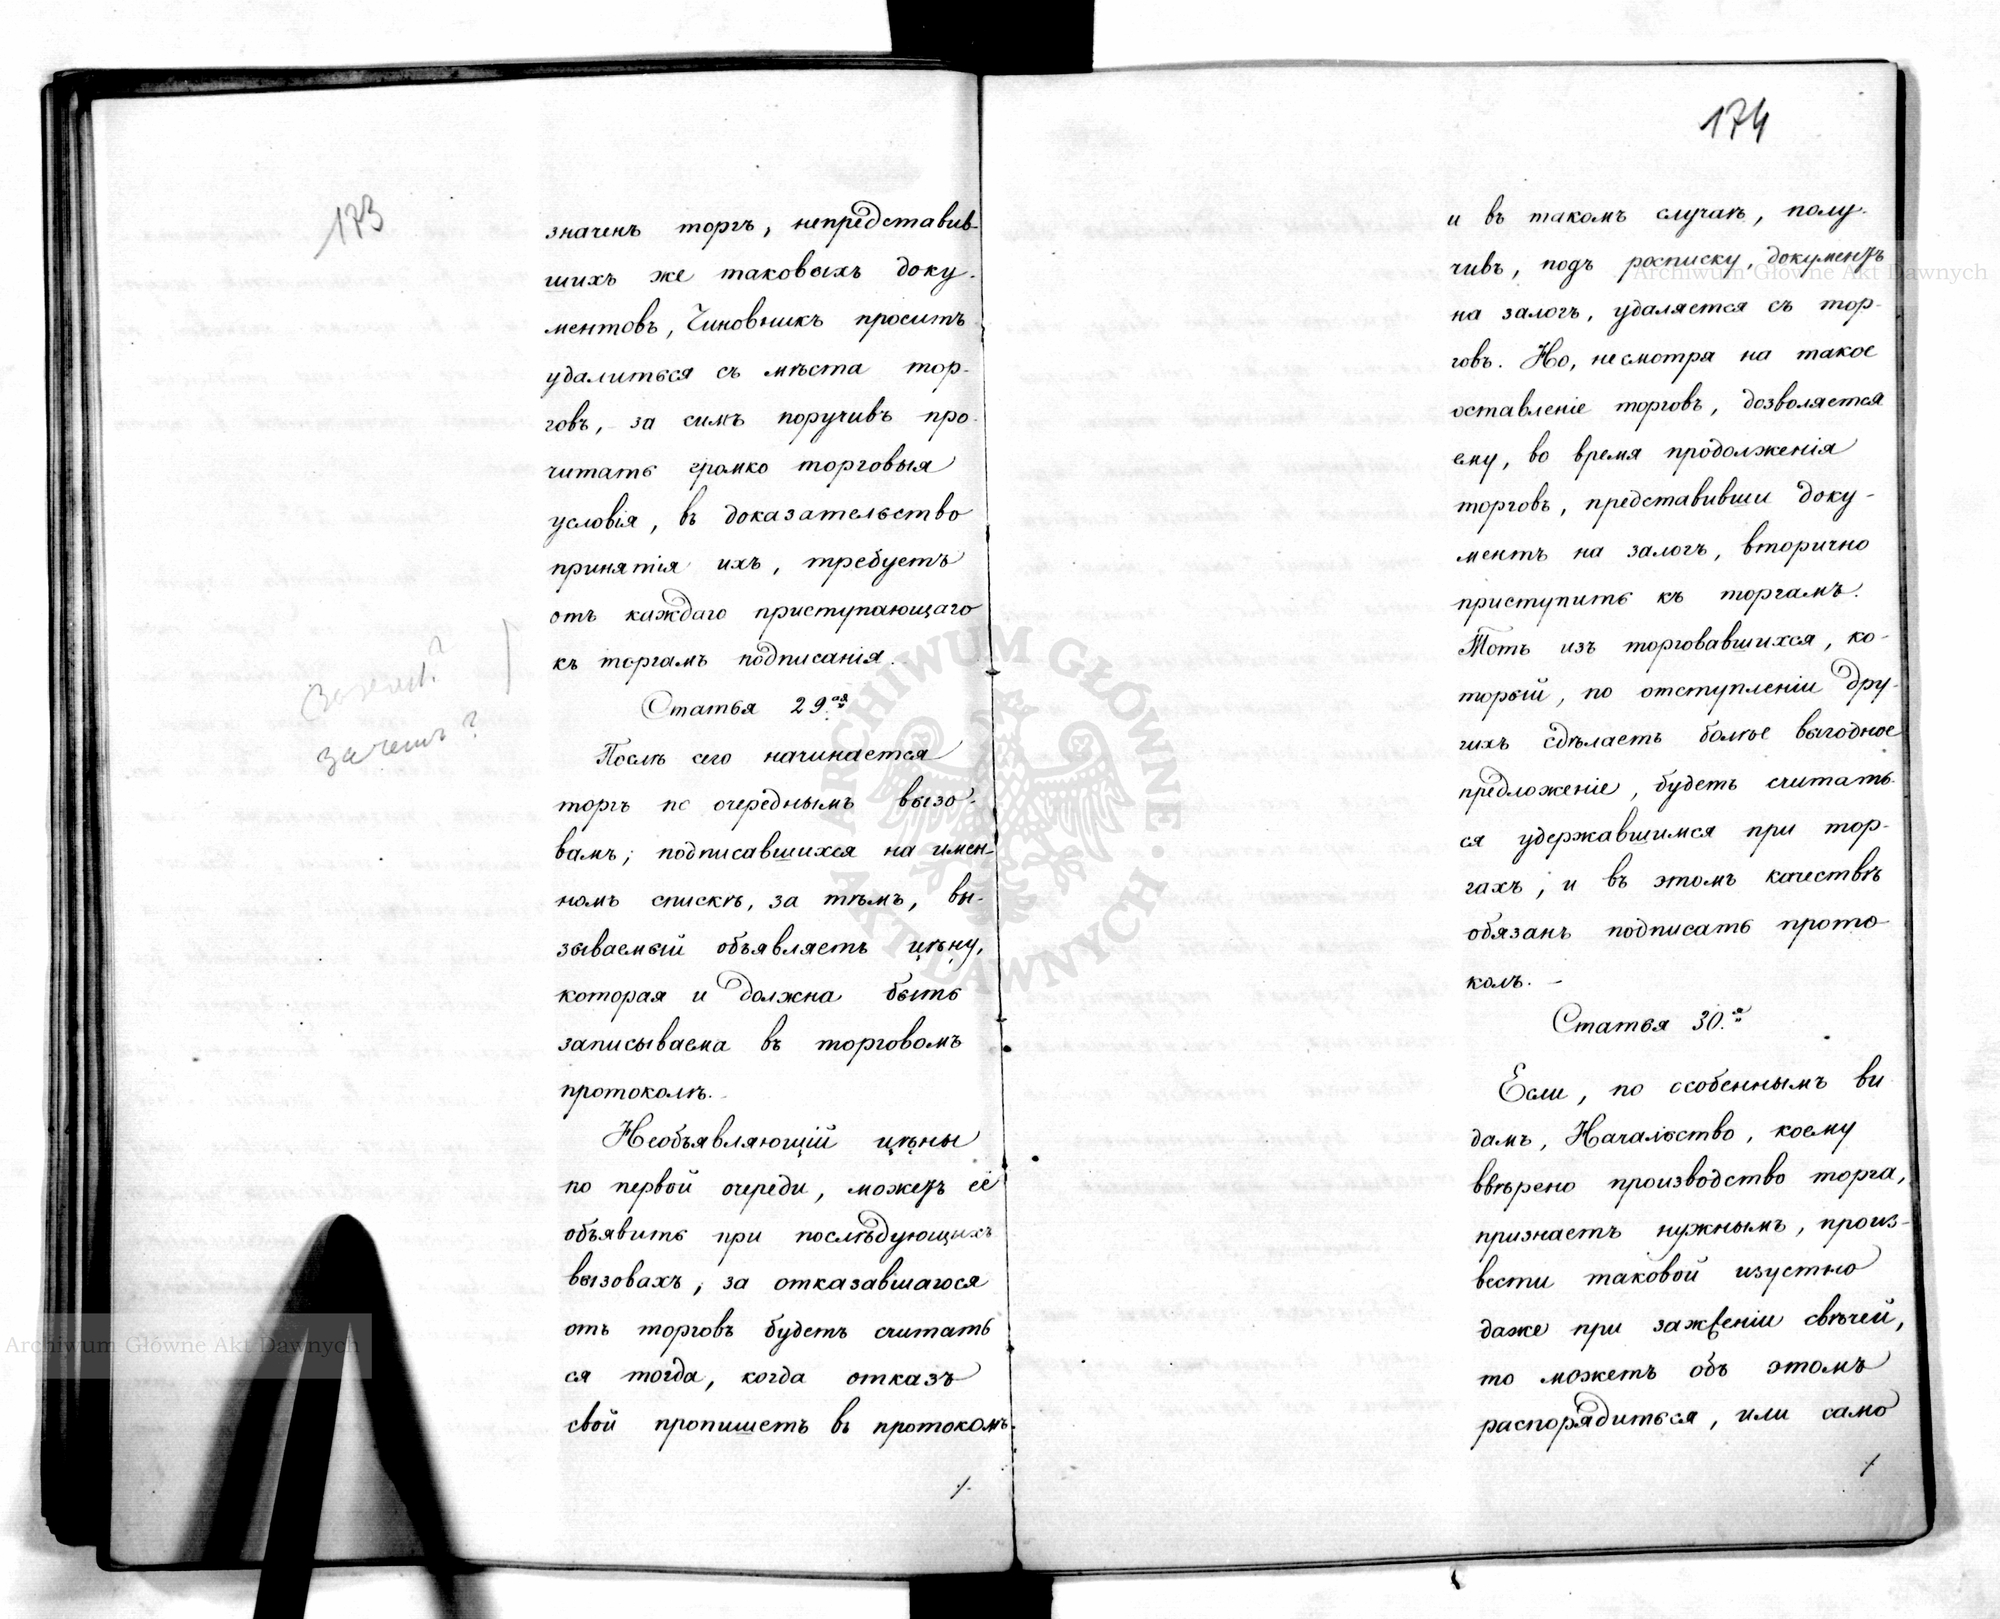 173
значенъ торгъ, непредставив-
шихъ же таковыхъ доку-
ментовъ, Чиновникъ проситъ
удалиться съ мѣста тор-
говъ, за симъ поручивъ про-
читать громко торговыя
условія, въ доказательство
принятія ихъ, требуетъ
отъ каждаго приступающаго
къ торгамъ подписанія.
зачемъ?
Статья 29.ая
Послѣ сего начинается
торгъ по очереднымъ вызо-
вамъ; подписавшихся на имен-
номъ спискѣ, за тѣмъ, вы-
зываемый объявляетъ цѣну,
которая и должна быть
записываема въ торговомъ
протоколѣ.
Необъявляющій цѣны
по первой очереди, можетъ её
объявить при послѣдующихъ
вызовахъ, за отказавшагося
отъ торговъ будетъ считать
ся тогда, когда отказъ
свой пропишетъ въ протоколѣ.
174
и въ такомъ случаѣ, полу-
чивъ, подъ росписку, документъ
на залогъ, удаляется съ тор-
говъ. Но, несмотря на такое
оставленіе торговъ, дозволяется
ему, во время продолженія
торговъ, представивши доку-
ментъ на залогъ, вторично
приступить къ торгамъ.
Тотъ изъ торговавшихся, ко-
торый, по отступленіи дру-
гихъ сдѣлаетъ болѣе выгодное
предложеніе, будетъ считать-
ся удержавшимся при тор-
гахъ, и въ этомъ качествѣ
обязанъ подписать прото-
колъ. —
Статья 30.я
Если, по особеннымъ ви
дамъ, Начальство, коему
ввѣрено производство торга,
признаетъ нужнымъ, произ-
вести таковой изустно
даже при зажженіи свѣчей,
то можетъ объ этомъ
распорядиться, или само
ARCHIWUM GŁÓWNE AKT DAWNYCH
Archiwum Główne Akt Dawnych
Archiwum Główne Akt Dawnych